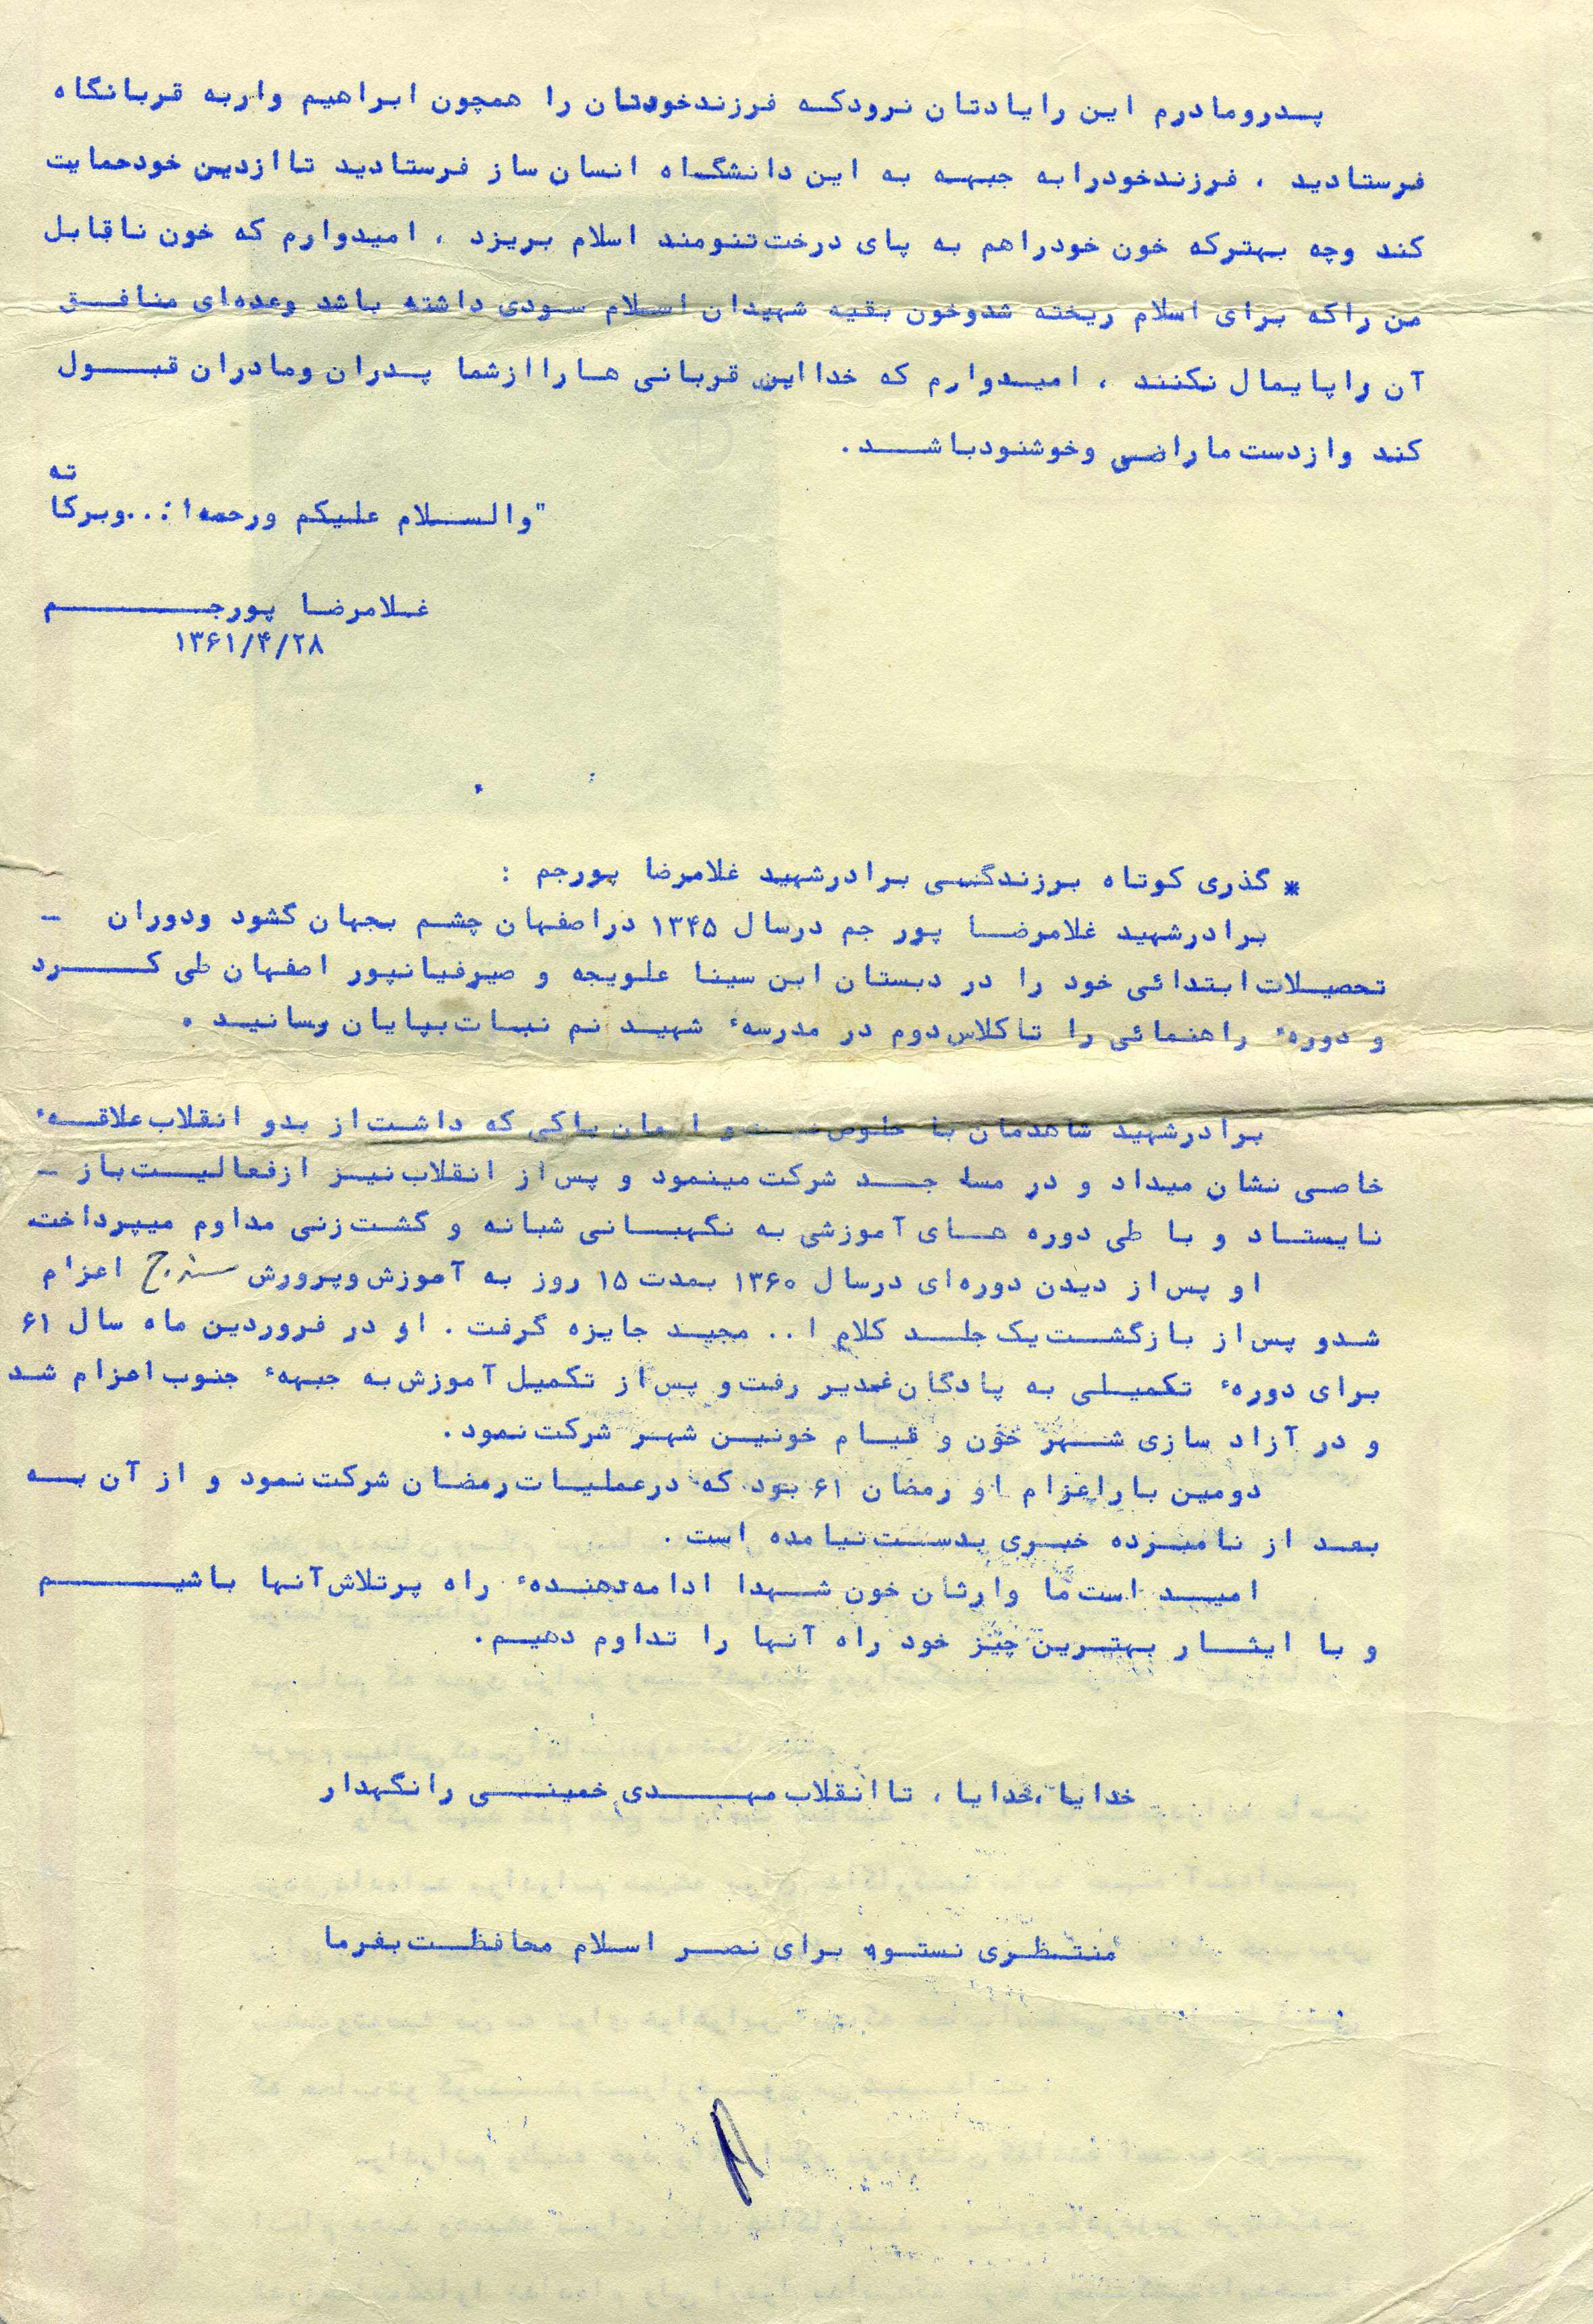 پدرومادرم این رایادتان نرودکه فرزندخودتان را همچون ابراهیم واربه قربانگاه
فرستادید ، فرزندخودرابه جبهه به این دانشگاه انسان ساز فرستادید تاازدین خودحمایت
کند وچه بهترکه خون خودراهم به پای درخت تنومند اسلام بریزد ، امیدوارم که خون ناقابل
من راکه برای اسلام ریخته شدوخون بقیه شهیدان اسلام سودی داشته باشد وعده‌ای منافق
آن راپایمال نکنند ، امیدوارم که خدااین قربانی هاراازشما پدران ومادران قبول
کند وازدست ماراضی وخوشنودباشد.
"والسلام علیکم ورحمه‌ا؛..وبرکا
ته
غلامرضا پورجم
۱۳۶۱/۴/۲۸
* گذری کوتاه برزندگی برادرشهید غلامرضا پورجم :
برادرشهید غلامرضا پور جم درسال ۱۳۴۵ دراصفهان چشم بجهان گشود ودوران -
تحصیلات ابتدائی خود را در دبستان ابن سینا علویجه و صیرفیانپور اصفهان طی کرد
و دورهٔ راهنمائی را تاکلاس دوم در مدرسهٔ شهید نم نبات بپایان رسانید .
برادرشهید شاهدمان با خلوص نیت و ایمان پاکی که داشت از بدو انقلاب علاقهٔ
خاصی نشان میداد و در مسا جد شرکت مینمود و پس از انقلاب نیز ازفعالیت باز -
نایستاد و با طی دوره های آموزشی به نگهبانی شبانه و گشت زنی مداوم میپرداخت
او پس از دیدن دوره‌ای درسال ۱۳۶۰ بمدت ۱۵ روز به آموزش وپرورش سنندج اعزام
شدو پس از بازگشت یک جلد کلام ا.. مجید جایزه گرفت . او در فروردین ماه سال ۶۱
برای دورهٔ تکمیلی به پادگان غدیر رفت و پس از تکمیل آموزش به جبههٔ جنوب اعزام شد
و در آزاد سازی شهر خون و قیام خونین شهر شرکت نمود.
دومین باراعزام او رمضان ۶۱ بود که درعملیات رمضان شرکت نمود و از آن به
بعد از نامبرده خبری بدست نیامده است .
امید است ما وارثان خون شهدا ادامه‌دهندهٔ راه پرتلاش آنها باشیم
و با ایثار بهترین چیز خود راه آنها را تداوم دهیم.
خدایا،خدایا ، تاانقلاب مهدی خمینی رانگهدار
منتظری نستوه برای نصر اسلام محافظت بفرما